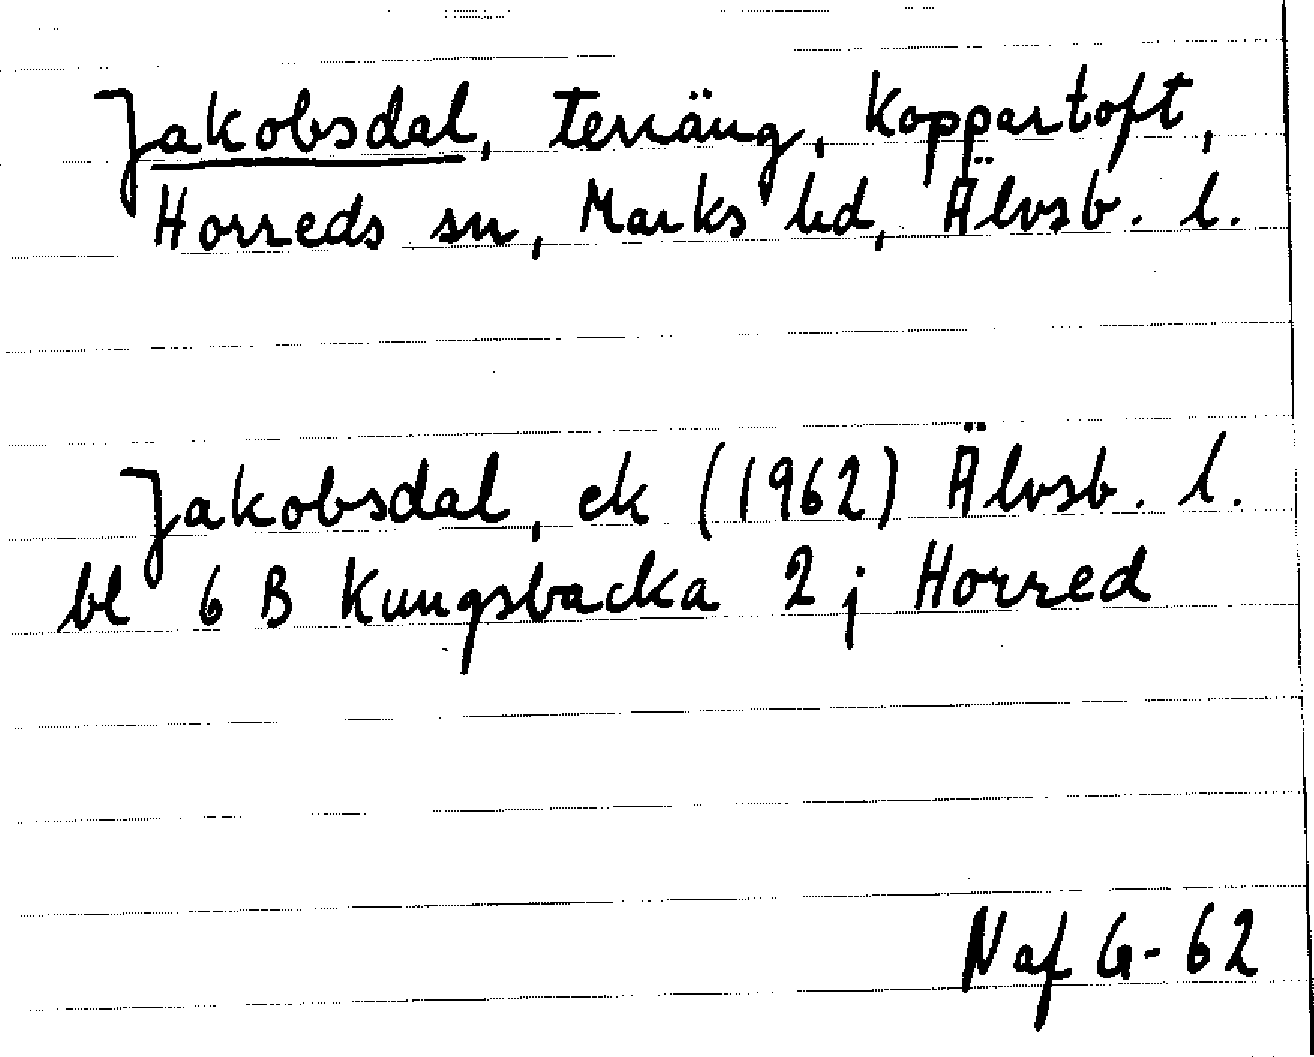 Jakobsdal, terräng, Koppartoft,
Horreds sn, Marks hd, Älvsb. l.
Jakobsdal, ek (1962) Älvsb. l.
bl 6 B Kungsbacka 2 j Horred
Naf G-62